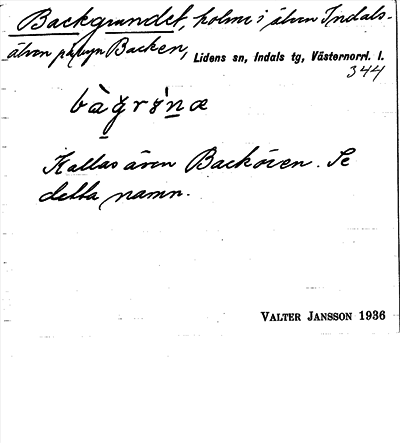 Backgrundet, holme i älven Indals-
älven på byn Backen, Lidens sn, Indals tg, Västernorrl. l.
344
bàğrɤ́næ
Kallas även Backören. Se
detta namn.
VALTER JANSSON 1936